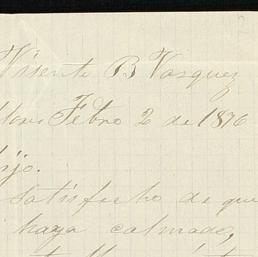 Vicente B Vasquez
Febro 2 de 1876
hijo.
satisfecho de que
haya calmado,